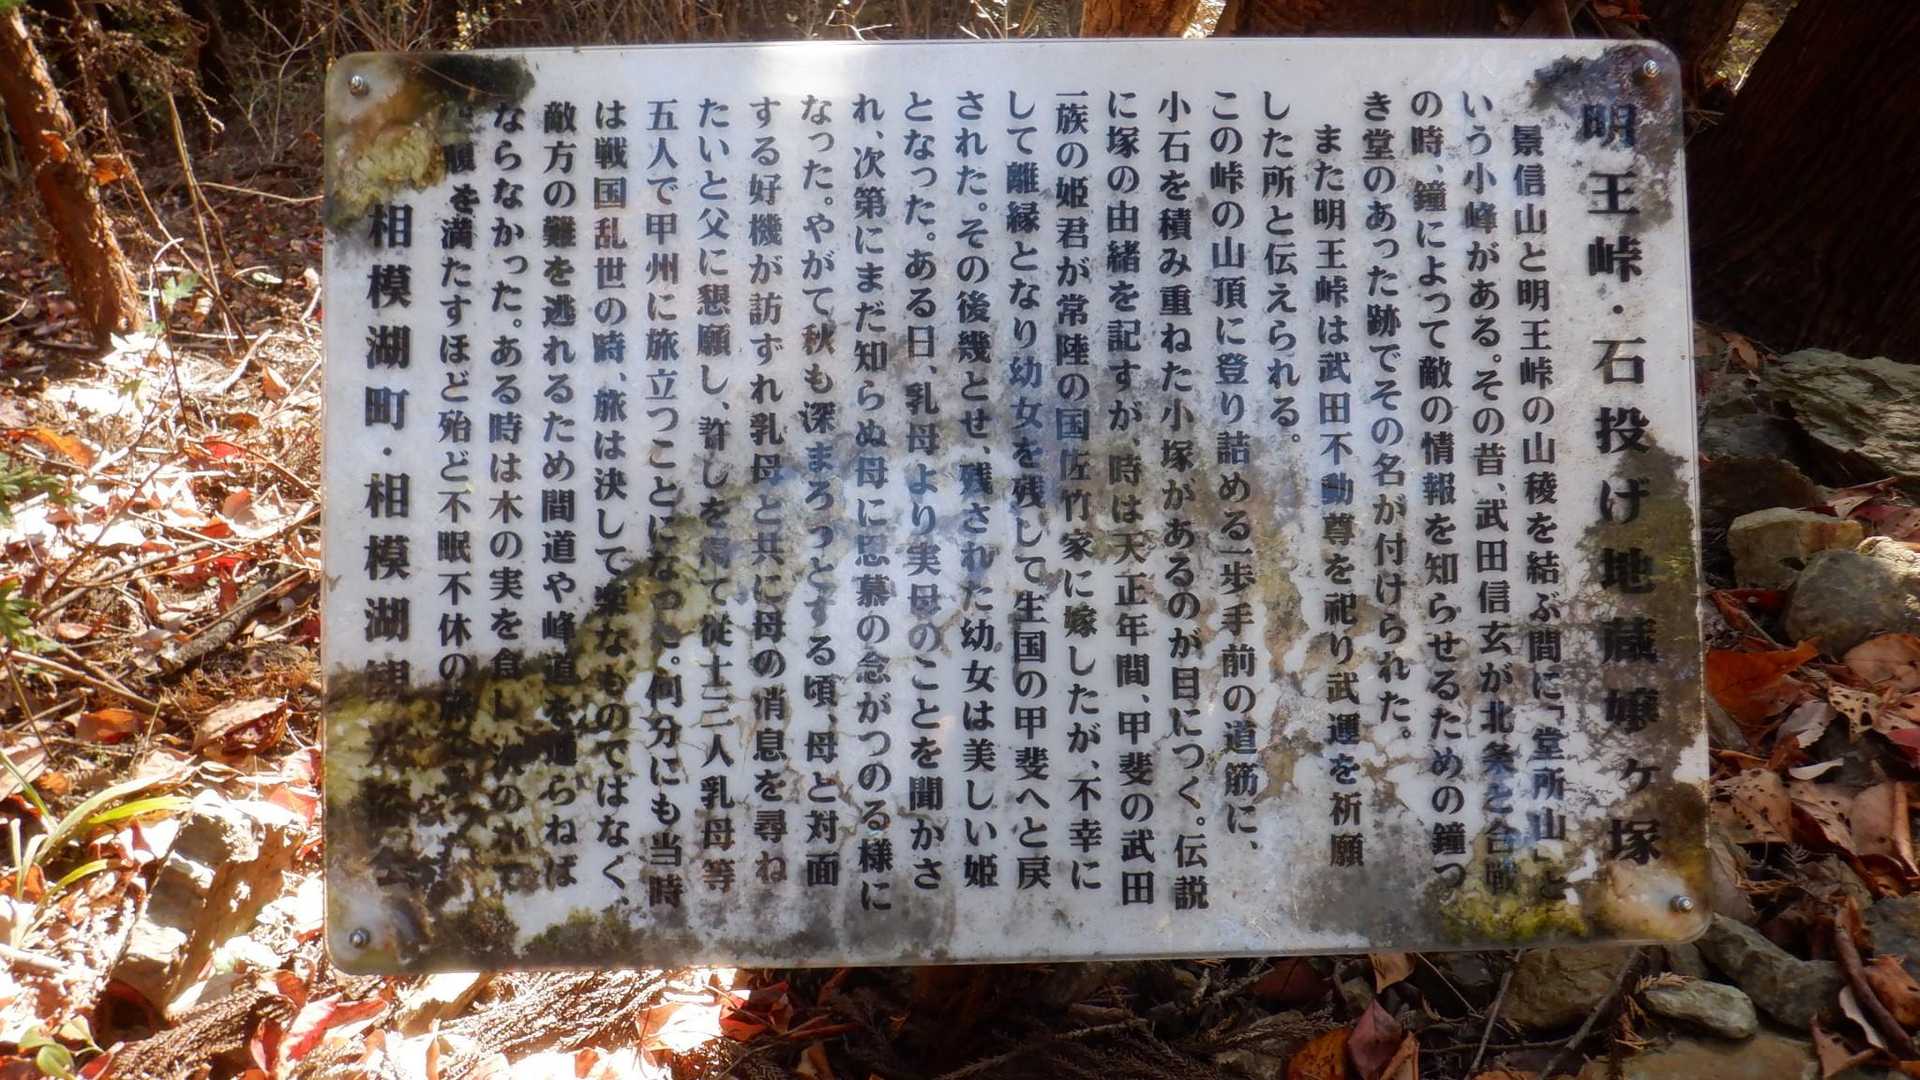 明王峠・石投げ地蔵嬢ヶ塚
景信山と明王峠の山稜を結ぶ間に「堂所山」と
いう小峰がある。その昔、武田信玄が北条と合戦
の時、鐘によって敵の情報を知らせるための鐘つ
き堂のあった跡でその名が付けられた。
また明王峠は武田不動尊を祀り武運を祈願
した所と伝えられる。
この峠の山頂に登り詰める一歩手前の道筋に、
小石を積み重ねた小塚があるのが目につく。伝説
に塚の由緒を記すが、時は天正年間、甲斐の武田
一族の姫君が常陸の国佐竹家に嫁したが、不幸に
して離縁となり幼女を残して生国の甲斐へと戻
された。その後幾とせ、残された幼女は美しい姫
となった。ある日、乳母より実母のことを聞かさ
れ、次第にまだ知らぬ母に思慕の念がつのる様に
なった。やがて秋も深まろうとする頃、母と対面
する好機が訪ずれ乳母と共に母の消息を尋ね
たいと父に懇願し、許しを得て従士三人乳母等
五人で甲州に旅立つことになった。何分にも当時
は戦国乱世の時、旅は決して楽なものではなく、
敵方の難を逃れるため間道や峰道を通らねば
ならなかった。ある時は木の実を食し
腹を満たすほど殆ど不眠不休の
相模湖町・相模湖観光協会